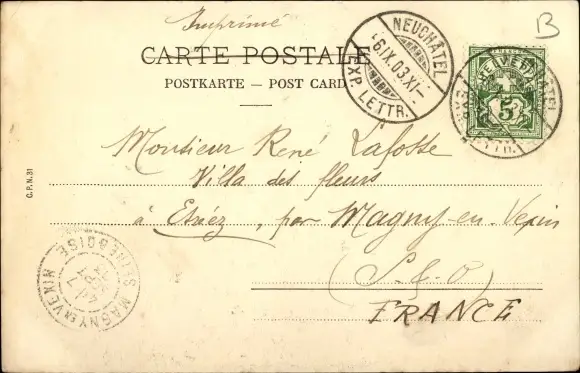 Imprimé
B
CARTE POSTALE
POSTKARTE — POST CARD
NEUCHÂTEL
-6.IX.03.XI-
EXP. LETTR.
HELVETIA
5
C.P.N. 31
Monsieur René Lafosse
Villa des fleurs
à Estréez, par Magny-en-Vexin
(S-&-O)
FRANCE
MAGNY EN VEXIN
SEINE & OISE